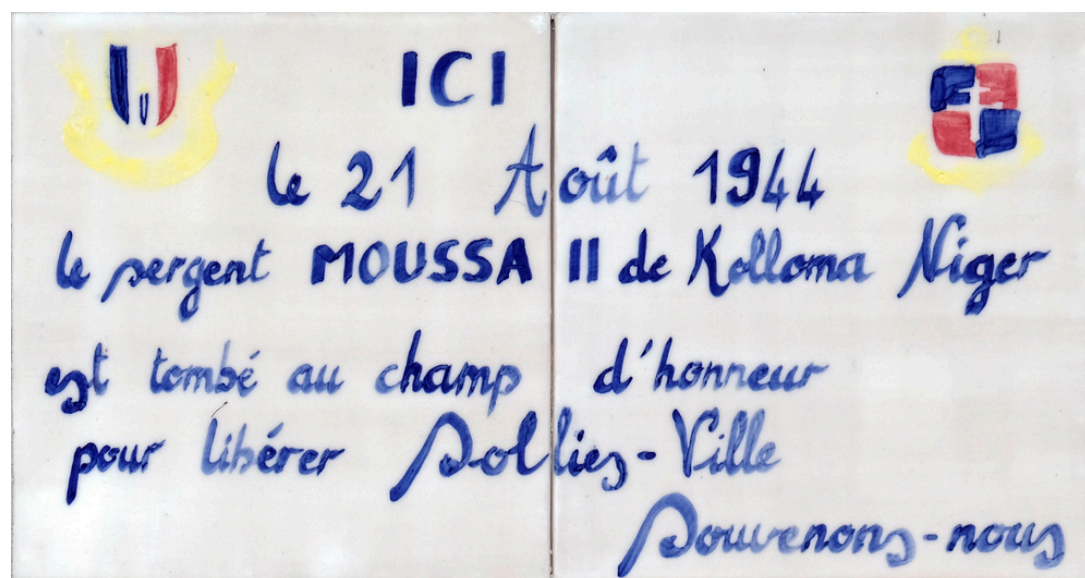 ICI
le 21 Août 1944
le sergent MOUSSA II de Kolloma Niger
est tombé au champ d'honneur
pour libérer Solliès-Ville
Souvenons-nous